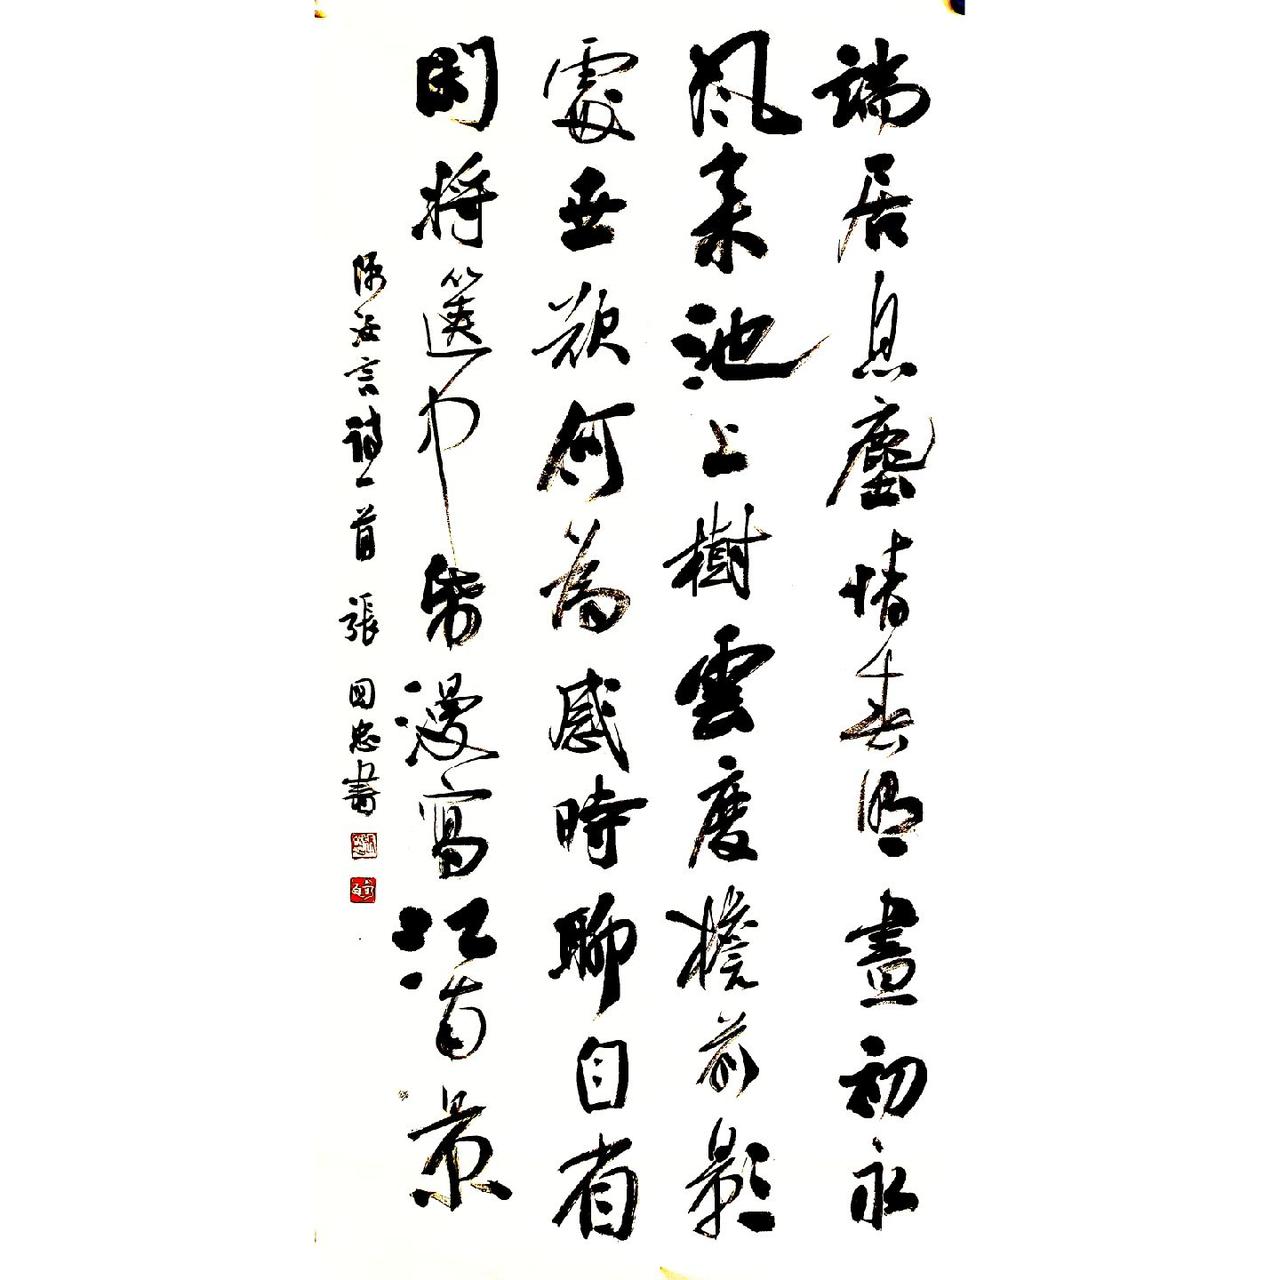 端居息塵情春閒晝初永
風來池上樹雲度檐前影
處世欲何為感時聊自省
閑將篋中帋漫寫江南景
陳汝言詩一首 張国忠書